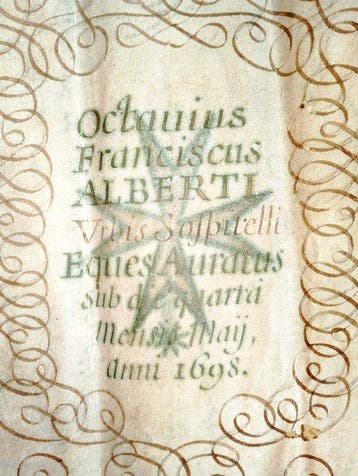 Octauius
Franciscus
ALBERTI
Vrbis Sospitelli
Eques Auratus
sub die quarta
Mensis Maij,
anni 1698.